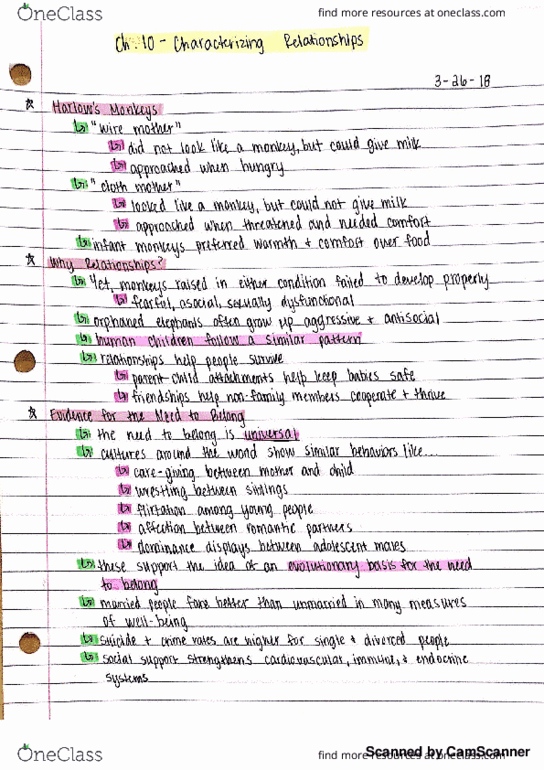 OneClass
find more resources at oneclass.com
Ch. 10 - Characterizing Relationships
3-26-18
Harlow's Monkeys
"wire mother"
did not look like a monkey, but could give milk
approached when hungry
"cloth mother"
looked like a monkey, but could not give milk
approached when threatened and needed comfort
infant monkeys preferred warmth + comfort over food
Why Relationships?
Yet, monkeys raised in either condition failed to develop properly
fearful, asocial, sexually dysfunctional
orphaned elephants often grow up aggressive + antisocial
human children follow a similar pattern
relationships help people survive
parent-child attachments help keep babies safe
friendships help non-family members cooperate + thrive
Evidence for the Need to Belong
the need to belong is universal
cultures around the world show similar behaviors like...
care-giving between mother and child
wrestling between siblings
flirtation among young people
affection between romantic partners
dominance displays between adolescent males
these support the idea of an evolutionary basis for the need
to belong
married people fare better than unmarried in many measures
of well-being
suicide + crime rates are higher for single + divorced people
social support strengthens cardiovascular, immune, + endocrine
systems
OneClass
find more resources at oneclass.com
Scanned by CamScanner